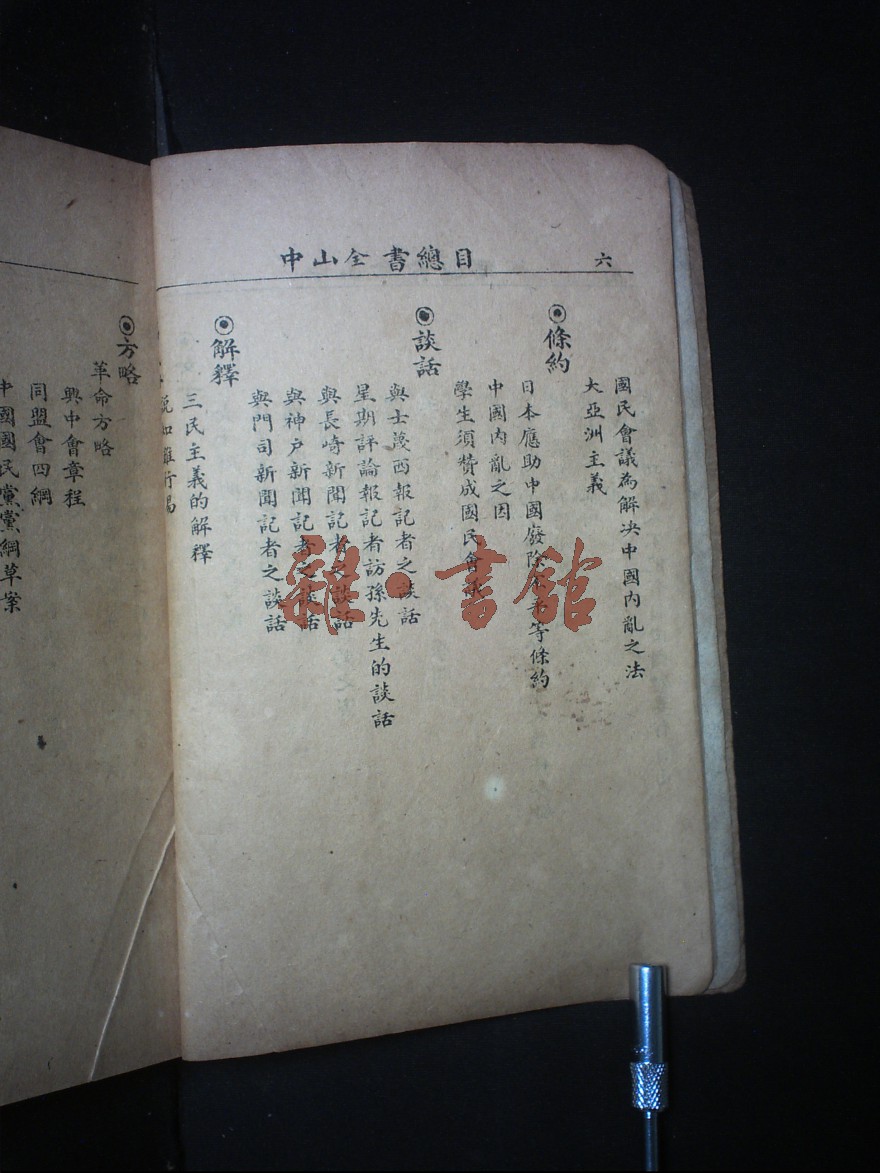 中山全書總目
六
國民會議為解決中國內亂之法
大亞洲主義
◉條約
日本應助中國廢除不平等條約
中國內亂之因
學生須贊成國民會議
◉談話
與士蔑西報記者之談話
星期評論報記者訪孫先生的談話
與長崎新聞記者之談話
與神戶新聞記者之談話
與門司新聞記者之談話
◉解釋
三民主義的解釋
知難行易
◉方略
革命方略
興中會章程
同盟會四綱
中國國民黨黨綱草案
雜·書館